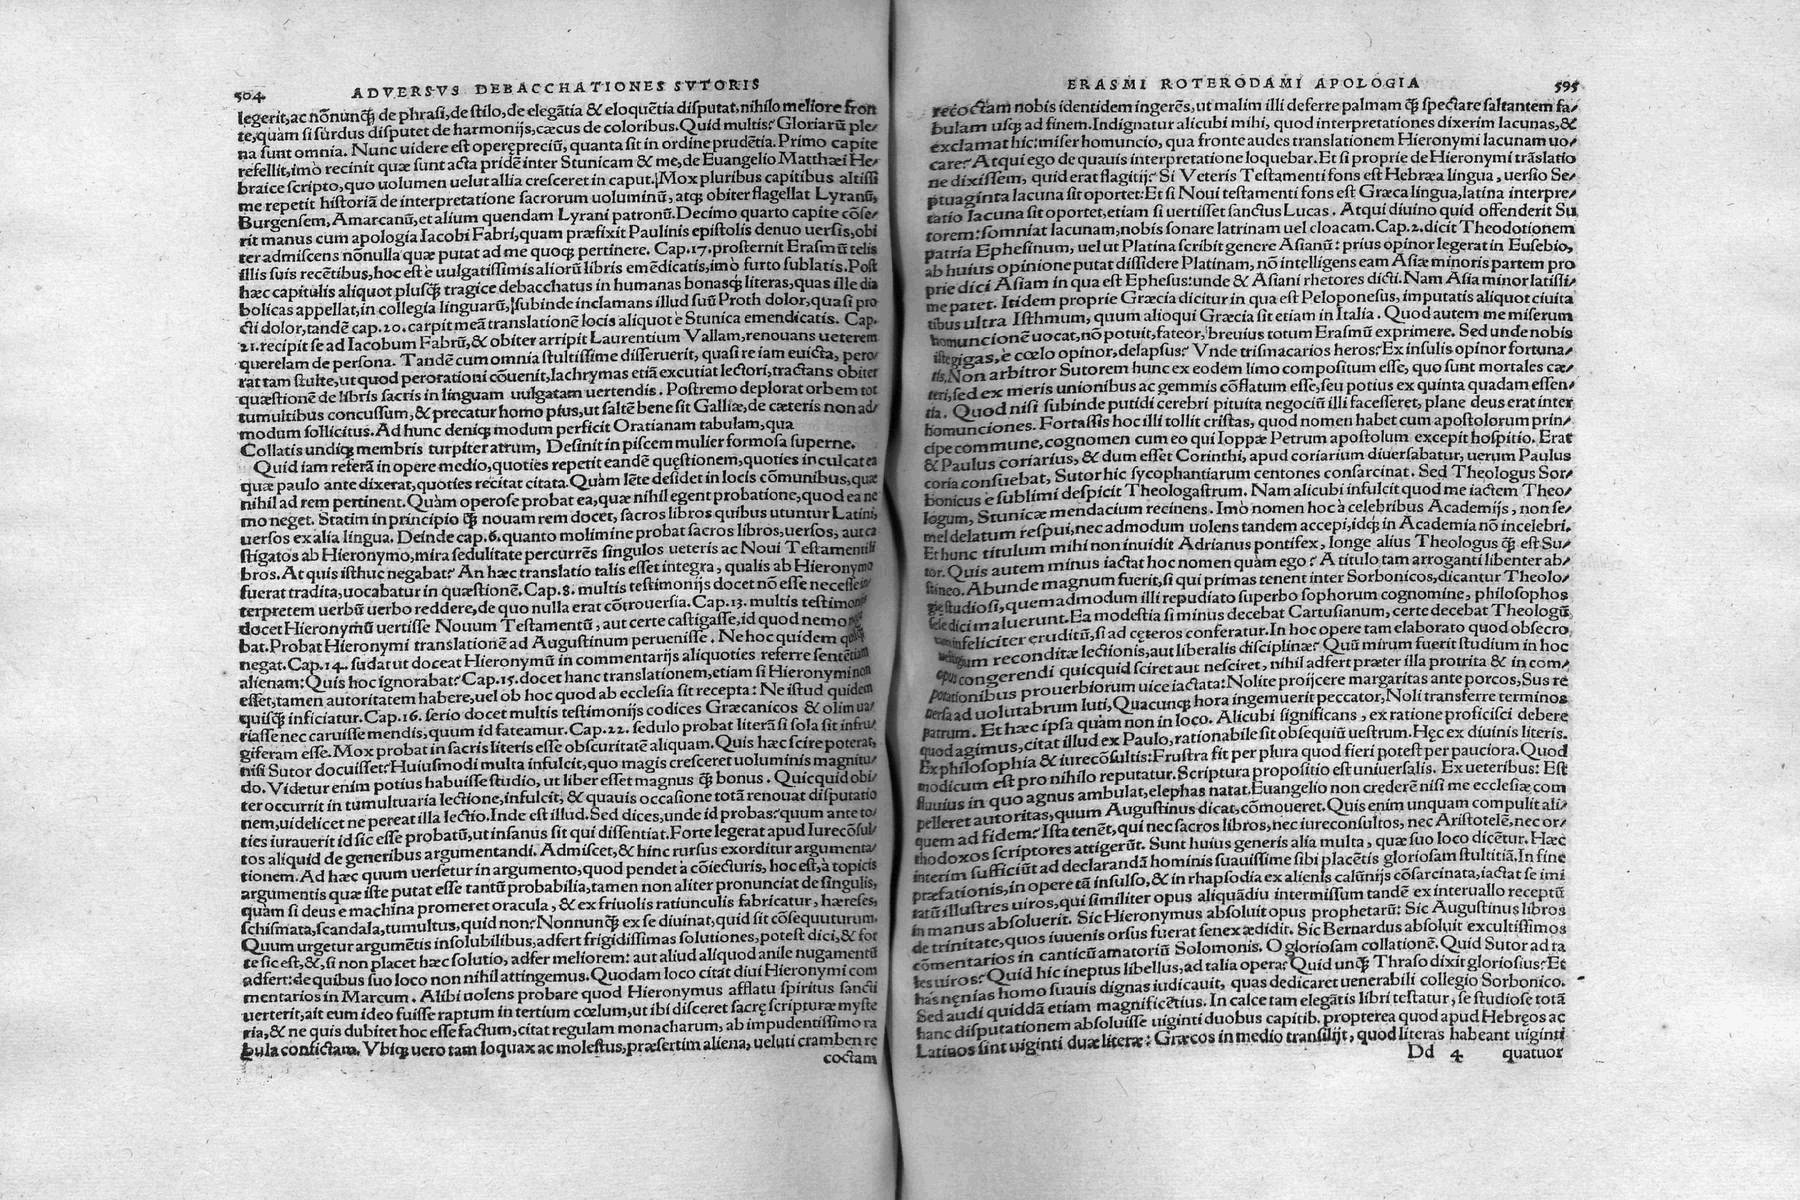 504 ADVERSVS DEBACCHATIONES SVTORIS
legerit, ac nõnunq̃ de phrasi, de stilo, de elegãtia & eloquẽtia disputat, nihilo meliore fron
te, quam si surdus disputet de harmonijs, cæcus de coloribus. Quid multis? Gloriarũ ple-
na sunt omnia. Nunc uidere est operęprecium, quanta sit in ordine prudẽtia. Primo capite
refellit, imò recinit quæ sunt acta pridẽ inter Stunicam & me, de Euangelio Matthæi He-
braice scripto, quo uolumen uelut allia cresceret in caput. Mox pluribus capitibus altissi
me repetit historiã de interpretatione sacrorum uoluminũ, atq; obiter flagellat Lyranũ,
Burgensem, Amarcanũ, et alium quendam Lyrani patronũ. Decimo quarto capite cõse-
rit manus cum apologia Iacobi Fabri, quam præfixit Paulinis epistolis denuo uersis, obi
ter admiscens nõnulla quæ putat ad me quoq; pertinere. Cap. 17. prosternit Erasmũ telis
illis suis recẽtibus, hoc est è uulgatissimis aliorũ libris emẽdicatis, imò furto sublatis. Post
hæc capitulis aliquot plusq̃ tragice debacchatus in humanas bonasq; literas, quas ille dia
bolicas appellat, in collegia linguarũ, subinde inclamans illud suũ Proth dolor, quasi pro
cti dolor, tandẽ cap. 20. carpit meã translationẽ locis aliquot è Stunica emendicatis. Cap.
21. recipit se ad Iacobum Fabrũ, & obiter arripit Laurentium Vallam, renouans ueterem
querelam de persona. Tandẽ cum omnia stultissime disseruerit, quasi re iam euicta, pero-
rat tam stulte, ut quod perorationi cõuenit, lachrymas etiã excutiat lectori, tractans obiter
quæstionẽ de libris sacris in linguam uulgatam uertendis. Postremo deplorat orbem tot
tumultibus concussum, & precatur homo pius, ut saltẽ bene sit Galliæ, de cæteris non ad-
modum sollicitus. Ad hunc deniq; modum perficit Oratianam tabulam, qua
Collatis undiq; membris turpiter atrum, Desinit in piscem mulier formosa superne.
Quid iam referã in opere medio, quoties repetit eandẽ quęstionem, quoties inculcat ea
quæ paulo ante dixerat, quoties recitat citata. Quàm lẽte desidet in locis cõmunibus, quæ
nihil ad rem pertinent. Quàm operose probat ea, quæ nihil egent probatione, quod ea ne
mo neget. Statim in principio q̃ nouam rem docet, sacros libros quibus utuntur Latini,
uersos ex alia lingua. Deinde cap. 6. quanto molimine probat sacros libros, uersos, aut ca
stigatos ab Hieronymo, mira sedulitate percurrẽs singulos ueteris ac Noui Testamenti li
bros. At quis isthuc negabat? An hæc translatio talis esset integra, qualis ab Hieronymo
fuerat tradita, uocabatur in quæstionẽ. Cap. 8. multis testimonijs docet nõ esse necesse in-
terpretem uerbũ uerbo reddere, de quo nulla erat cõtrouersia. Cap. 13. multis testimonijs
docet Hieronymũ uertisse Nouum Testamentũ, aut certe castigasse, id quod nemo nega
bat. Probat Hieronymi translationẽ ad Augustinum peruenisse. Ne hoc quidem quisq̃
negat. Cap. 14. sudat ut doceat Hieronymũ in commentarijs aliquoties referre sentẽtiam
alienam: Quis hoc ignorabat? Cap. 15. docet hanc translationem, etiam si Hieronymi non
esset, tamen autoritatem habere, uel ob hoc quod ab ecclesia sit recepta: Ne istud quidem
quisq̃ inficiatur. Cap. 16. serio docet multis testimonijs codices Græcanicos & olim ua-
riasse nec caruisse mendis, quum id fateamur. Cap. 22. sedulo probat literã si sola sit infru-
giferam esse. Mox probat in sacris literis esse obscuritatẽ aliquam. Quis hæc scire poterat,
nisi Sutor docuisset? Huiusmodi multa infulcit, quo magis cresceret uoluminis magnitu-
do. Videtur enim potius habuisse studio, ut liber esset magnus q̃ bonus. Quicquid obi-
ter occurrit in tumultuaria lectione, infulcit, & quauis occasione totã renouat disputatio
nem, uidelicet ne pereat illa lectio. Inde est illud. Sed dices, unde id probas? quum ante to-
ties iurauerit id sic esse probatũ, ut insanus sit qui dissentiat. Forte legerat apud Iurecõsul-
tos aliquid de generibus argumentandi. Admiscet, & hinc rursus exorditur argumenta-
tionem. Ad hæc quum uersetur in argumento, quod pendet à cõiecturis, hoc est, à topicis
argumentis quæ iste putat esse tantũ probabilia, tamen non aliter pronunciat de singulis,
quàm si deus e machina promeret oracula, & ex friuolis ratiunculis fabricatur, hæreses,
schismata, scandala, tumultus, quid non? Nonnunq̃ ex se diuinat, quid sit cõsequuturum.
Quum urgetur argumẽtis insolubilibus, adfert frigidissimas solutiones, potest dici, & for
te sic est, &, si non placet hæc solutio, adfer meliorem: aut aliud aliquod anile nugamentũ
adfert: de quibus suo loco non nihil attingemus. Quodam loco citat diui Hieronymi com
mentarios in Marcum. Alibi uolens probare quod Hieronymus afflatu spiritus sancti
uerterit, ait eum ideo fuisse raptum in tertium cœlum, ut ibi disceret sacrę scripturæ myste
ria, & ne quis dubitet hoc esse factum, citat regulam monacharum, ab impudentissimo ra
bula confictam. Vbiq; uero tam loquax ac molestus, præsertim aliena, ueluti cramben re
coctam
ERASMI ROTERODAMI APOLOGIA 595
recoctam nobis identidem ingerẽs, ut malim illi deferre palmam q̃ spectare saltantem fa-
bulam usq; ad finem. Indignatur alicubi mihi, quod interpretationes dixerim lacunas, &
exclamat hic: miser homuncio, qua fronte audes translationem Hieronymi lacunam uo-
care? Atqui ego de quauis interpretatione loquebar. Et si proprie de Hieronymi trãslatio
ne dixissem, quid erat flagitij? Si Veteris Testamenti fons est Hebræa lingua, uersio Se-
ptuaginta lacuna sit oportet: Et si Noui testamenti fons est Græca lingua, latina interpre-
tatio lacuna sit oportet, etiam si uertisset sanctus Lucas. Atqui diuino quid offenderit Su
torem: somniat lacunam, nobis sonare latrinam uel cloacam. Cap. 2. dicit Theodotionem
patria Ephesinum, uel ut Platina scribit genere Asianũ: prius opinor legerat in Eusebio,
ab huius opinione putat dissidere Platinam, nõ intelligens eam Asiæ minoris partem pro
prie dici Asiam in qua est Ephesus: unde & Asiani rhetores dicti. Nam Asia minor latissi-
me patet. Itidem proprie Græcia dicitur in qua est Peloponesus, imputatis aliquot ciuita
tibus ultra Isthmum, quum alioqui Græcia sit etiam in Italia. Quod autem me miserum
homuncionẽ uocat, nõ potuit, fateor, breuius totum Erasmũ exprimere. Sed unde nobis
iste gigas, è cœlo opinor, delapsus? Vnde trismacarios heros? Ex insulis opinor fortuna-
tis. Non arbitror Sutorem hunc ex eodem limo compositum esse, quo sunt mortales cæ-
teri, sed ex meris unionibus ac gemmis cõflatum esse, seu potius ex quinta quadam essen-
tia. Quod nisi subinde putidi cerebri pituita negociũ illi facesseret, plane deus erat inter
homunciones. Fortassis hoc illi tollit cristas, quod nomen habet cum apostolorum prin-
cipe commune, cognomen cum eo qui Ioppæ Petrum apostolum excepit hospitio. Erat
& Paulus coriarius, & dum esset Corinthi, apud coriarium diuersabatur, uerum Paulus
coria consuebat, Sutor hic sycophantiarum centones consarcinat. Sed Theologus Sor-
bonicus è sublimi despicit Theologastrum. Nam alicubi infulcit quod me iactem Theo-
logum, Stunicæ mendacium recinens. Imò nomen hoc à celebribus Academijs, non se-
mel delatum respui, nec admodum uolens tandem accepi, idq; in Academia nõ incelebri.
Et hunc titulum mihi non inuidit Adrianus pontifex, longe alius Theologus q̃ est Su-
tor. Quis autem minus iactat hoc nomen quàm ego? A titulo tam arroganti libenter ab-
stineo. Abunde magnum fuerit, si qui primas tenent inter Sorbonicos, dicantur Theolo-
giæ studiosi, quemadmodum illi repudiato superbo sophorum cognomine, philosophos
sese dici maluerunt. Ea modestia si minus decebat Cartusianum, certe decebat Theologũ
tam infeliciter eruditũ, si ad cęteros conferatur. In hoc opere tam elaborato quod obsecro
uestigium reconditæ lectionis, aut liberalis disciplinæ? Quũ mirum fuerit studium in hoc
opus congerendi quicquid sciret aut nesciret, nihil adfert præter illa protrita & in com-
potationibus prouerbiorum uice iactata: Nolite proijcere margaritas ante porcos, Sus re
uersa ad uolutabrum luti, Quacunq; hora ingemuerit peccator, Noli transferre terminos
patrum. Et hæc ipsa quàm non in loco. Alicubi significans, ex ratione proficisci debere
quod agimus, citat illud ex Paulo, rationabile sit obsequiũ uestrum. Hęc ex diuinis literis.
Ex philosophia & iurecõsultis: Frustra fit per plura quod fieri potest per pauciora. Quod
modicum est pro nihilo reputatur. Scriptura propositio est uniuersalis. Ex ueteribus: Est
fluuius in quo agnus ambulat, elephas natat. Euangelio non crederẽ nisi me ecclesiæ com
pelleret autoritas, quum Augustinus dicat, cõmoueret. Quis enim unquam compulit ali-
quem ad fidem? Ista tenẽt, qui nec sacros libros, nec iureconsultos, nec Aristotelẽ, nec or-
thodoxos scriptores attigerũt. Sunt huius generis alia multa, quæ suo loco dicẽtur. Hæc
interim sufficiũt ad declarandã hominis suauissime sibi placẽtis gloriosam stultitiã. In fine
præfationis, in opere tã insulso, & in rhapsodia ex alienis calũnijs cõsarcinata, iactat se imi
tatũ illustres uiros, qui similiter opus aliquãdiu intermissum tandẽ ex interuallo receptũ
in manus absoluerit. Sic Hieronymus absoluit opus prophetarũ: Sic Augustinus libros
de trinitate, quos iuuenis orsus fuerat senex ædidit. Sic Bernardus absoluit excultissimos
cõmentarios in canticũ amatoriũ Solomonis. O gloriosam collationẽ. Quid Sutor ad ta
les uiros? Quid hic ineptus libellus, ad talia opera? Quid unq̃ Thraso dixit gloriosius? Et
has nęnias homo suauis dignas iudicauit, quas dedicaret uenerabili collegio Sorbonico.
Sed audi quiddã etiam magnificẽtius. In calce tam elegãtis libri testatur, se studiose totã
hanc disputationem absoluisse uiginti duobus capitib. propterea quod apud Hebręos ac
Latinos sint uiginti duæ literæ: Græcos in medio transilijt, quod literas habeant uiginti
Dd 4 quatuor